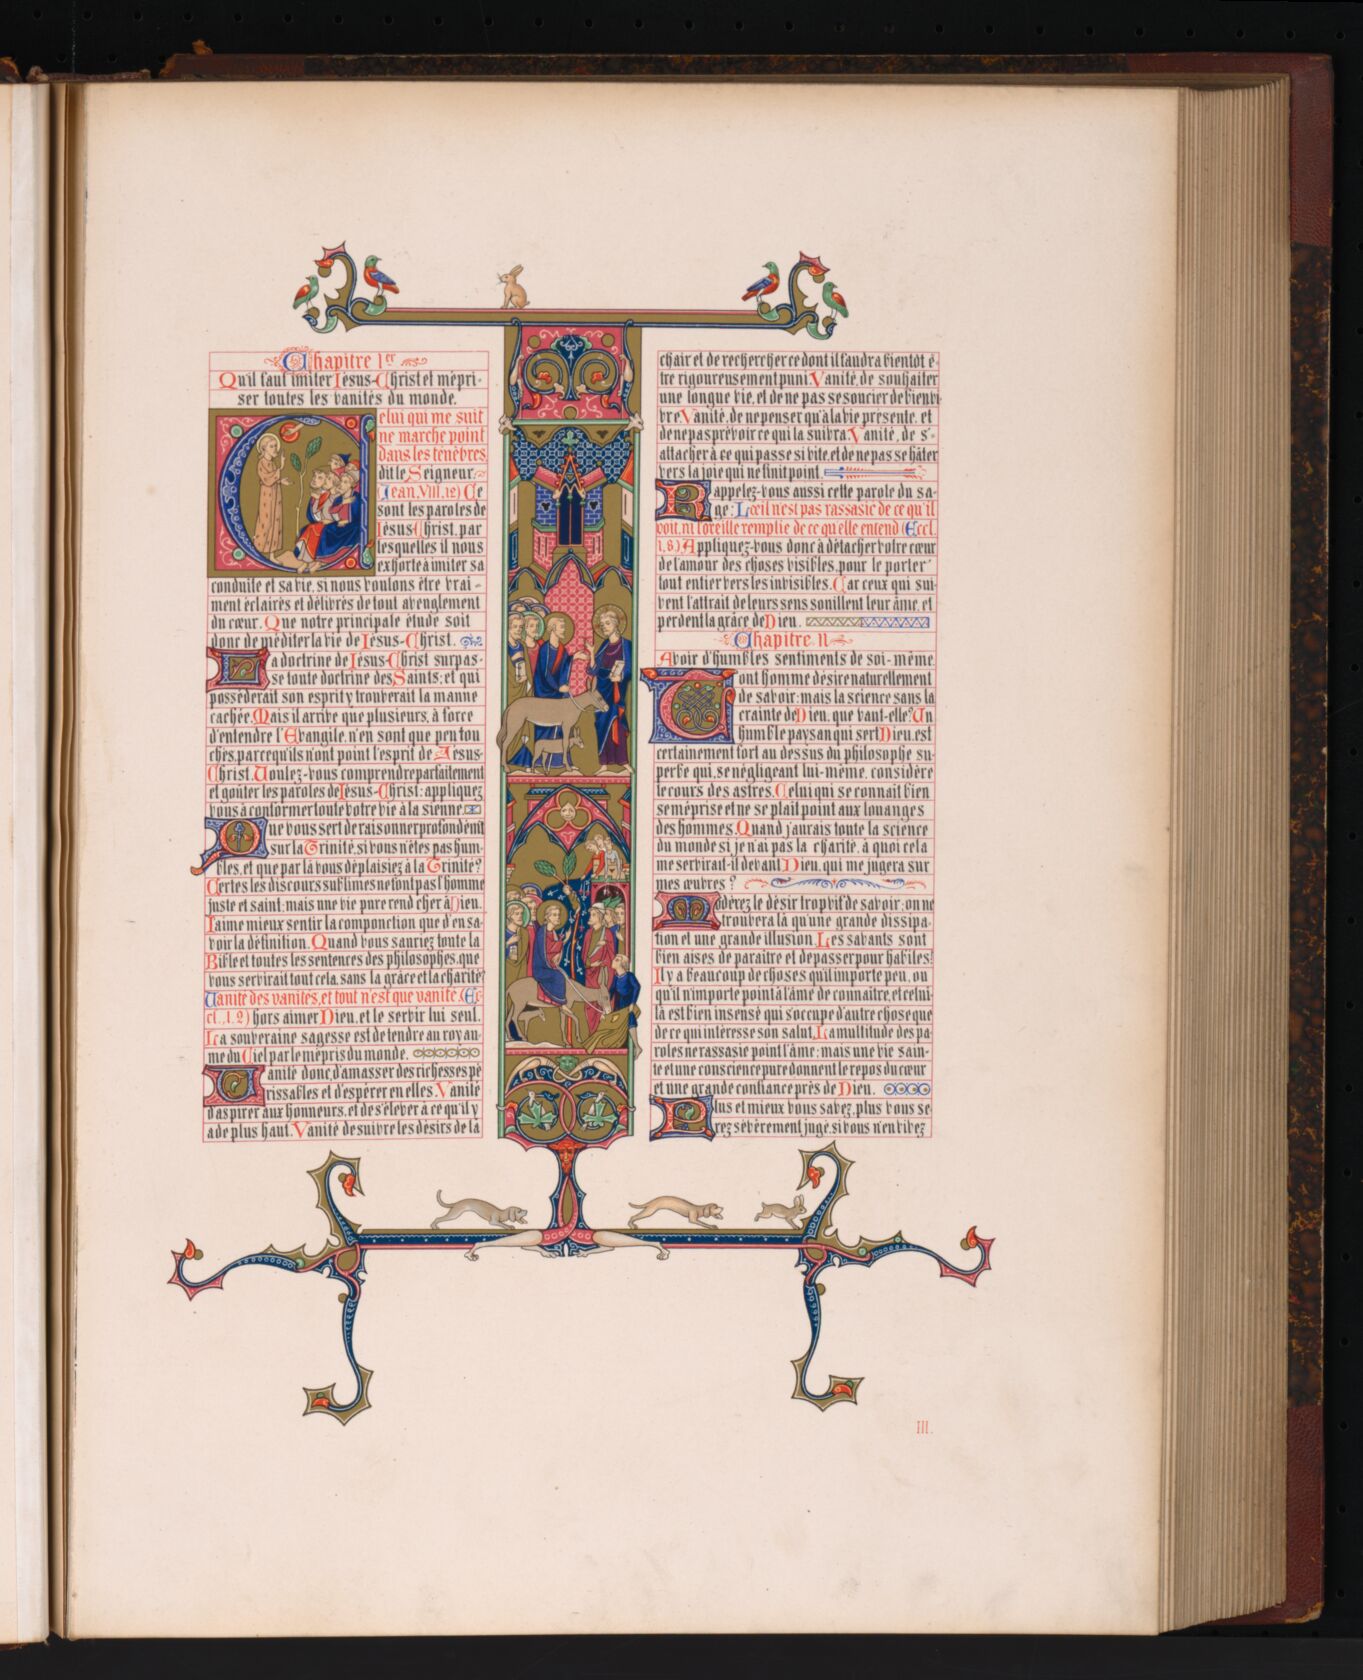 Chapitre 1er
Qu'il faut imiter Jésus-Christ et mépri-
ser toutes les vanités du monde.
Celui qui me suit
ne marche point
dans les ténèbres,
dit le Seigneur.
(Jean, VIII, 12) Ce
sont les paroles de
Jésus-Christ, par
lesquelles il nous
exhorte à imiter sa
conduite et sa vie, si nous voulons être vrai-
ment éclairés et délivrés de tout aveuglement
du cœur. Que notre principale étude soit
donc de méditer la vie de Jésus-Christ.
La doctrine de Jésus-Christ surpas-
se toute doctrine des Saints: et qui
posséderait son esprit y trouverait la manne
cachée. Mais il arrive que plusieurs, à force
d'entendre l'Evangile, n'en sont que peu tou
chés, parcequ'ils n'ont point l'esprit de Jésus-
Christ. Voulez-vous comprendre parfaitement
et goûter les paroles de Jésus-Christ: appliquez
vous à conformer toute votre vie à la sienne.
Que vous sert de raisonner profondémt
sur la Trinité, si vous n'êtes pas hum-
bles, et que par là vous déplaisiez à la Trinité?
Certes les discours sublimes ne font pas l'homme
juste et saint; mais une vie pure rend cher à Dieu.
J'aime mieux sentir la componction que d'en sa-
voir la définition. Quand vous sauriez toute la
Bible et toutes les sentences des philosophes, que
vous servirait tout cela, sans la grâce et la charité?
Vanité des vanités, et tout n'est que vanité. (Ec-
cl., 1, 2) hors aimer Dieu, et le servir lui seul.
La souveraine sagesse est de tendre au royau-
me du Ciel par le mépris du monde.
Vanité donc, d'amasser des richesses pé
rissables et d'espérer en elles. Vanité
d'aspirer aux honneurs, et de s'élever à ce qu'il y
a de plus haut. Vanité de suivre les désirs de la
chair et de rechercher ce dont il faudra bientôt ê-
tre rigoureusement puni. Vanité, de souhaiter
une longue vie, et de ne pas se soucier de bien vi
vre. Vanité, de ne penser qu'à la vie présente, et
de ne pas prévoir ce qui la suivra. Vanité, de s'-
attacher à ce qui passe si vite, et de ne pas se hâter
vers la joie qui ne finit point.
Rappelez-vous aussi cette parole du sa-
ge: L'œil n'est pas rassasié de ce qu'il
voit, ni l'oreille remplie de ce qu'elle entend (Eccl.
1, 8.) Appliquez-vous donc à détacher votre cœur
de l'amour des choses visibles, pour le porter
tout entier vers les invisibles. Car ceux qui sui-
vent l'attrait de leurs sens souillent leur âme, et
perdent la grâce de Dieu.
Chapitre II
Avoir d'humbles sentiments de soi-même.
Tout homme désire naturellement
de savoir; mais la science sans la
crainte de Dieu, que vaut-elle? Un
humble paysan qui sert Dieu, est
certainement fort au dessus du philosophe su-
perbe qui, se négligeant lui-même, considère
le cours des astres. Celui qui se connaît bien
se méprise et ne se plaît point aux louanges
des hommes. Quand j'aurais toute la science
du monde si je n'ai pas la charité, à quoi cela
me servirait-il devant Dieu, qui me jugera sur
mes œuvres?
Modérez le désir trop vif de savoir; on ne
trouvera là qu'une grande dissipa-
tion et une grande illusion. Les savants sont
bien aises de paraître et de passer pour habiles!
Il y a beaucoup de choses qu'il importe peu, ou
qu'il n'importe point à l'âme de connaître, et celui-
là est bien insensé qui s'occupe d'autre chose que
de ce qui intéresse son salut. La multitude des pa-
roles ne rassasie point l'âme; mais une vie sain-
te et une conscience pure donnent le repos du cœur
et une grande confiance près de Dieu.
Plus et mieux vous savez, plus vous se-
rez sévèrement jugé, si vous n'en vivez
III.